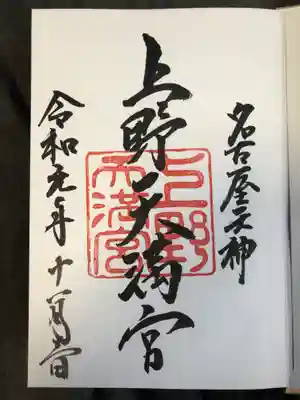 名古屋天神
上野天満宮
上野
天満宮
令和元年十一月